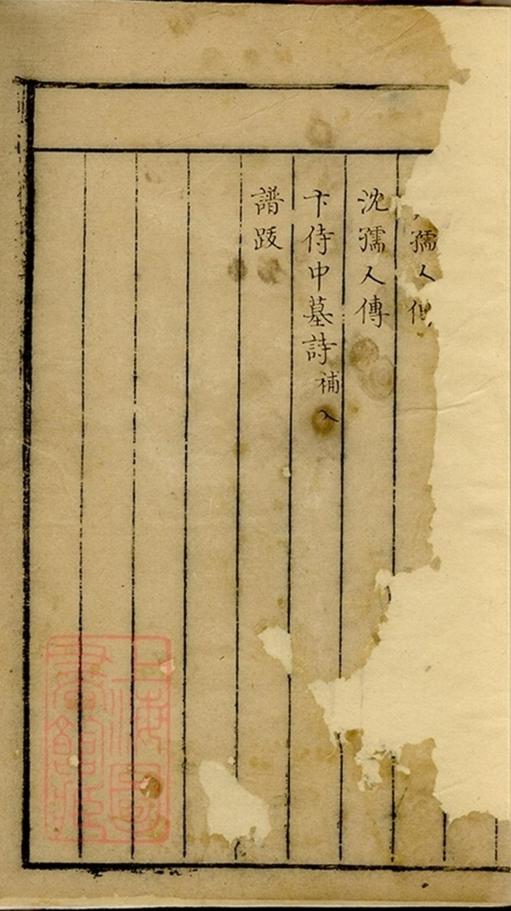 孺人傳
沈孺人傳
卞侍中墓詩補入
譜跋